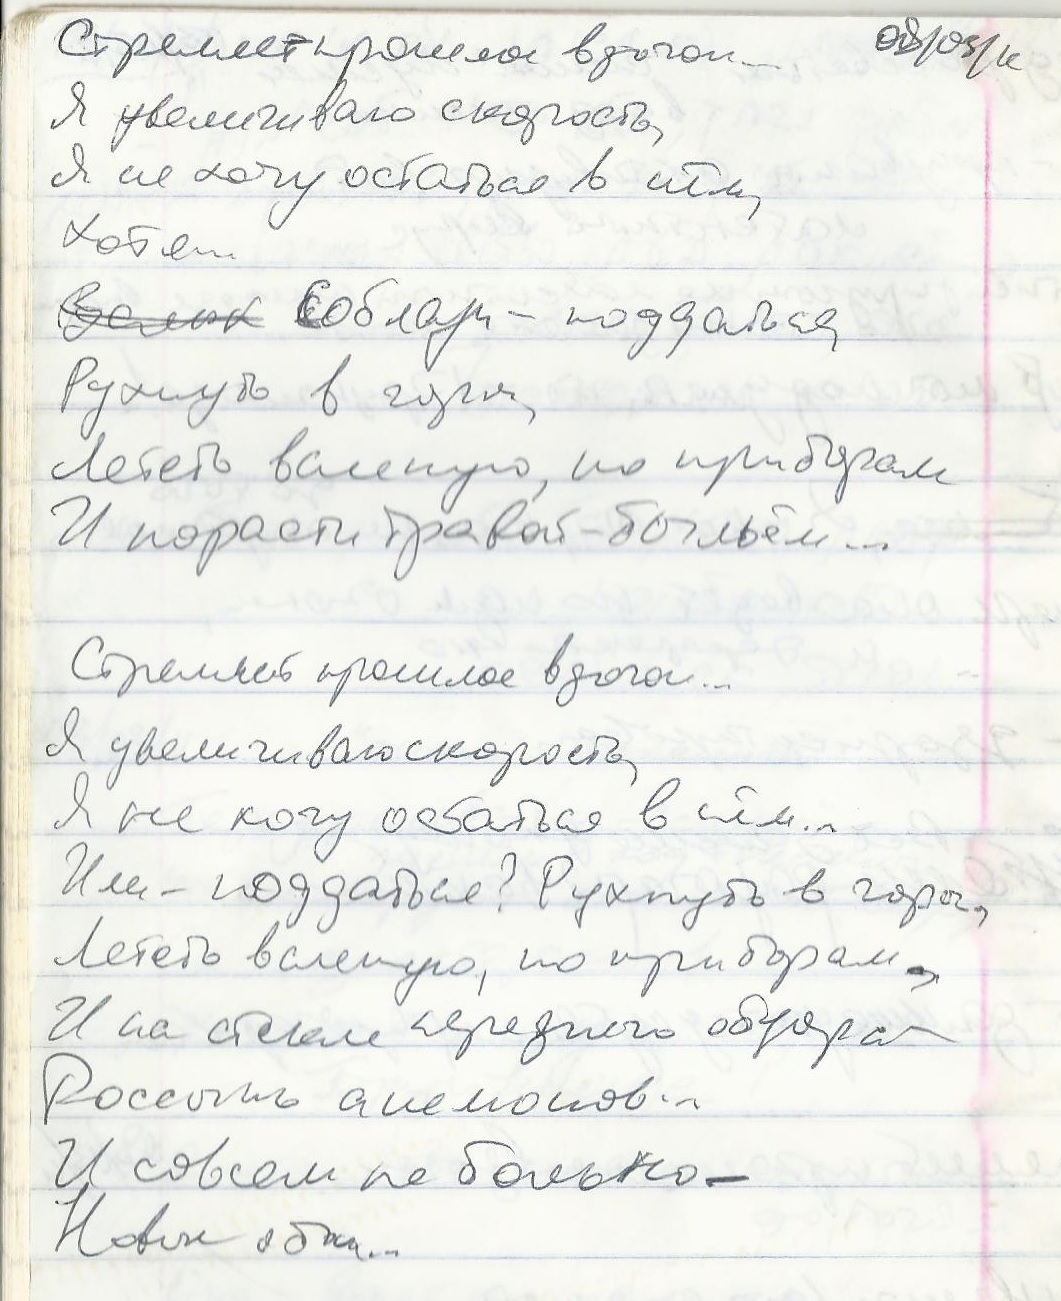 Стреляет прошлое вдогон... 08/03/11
Я увеличиваю скорость,
Я не хочу остаться в нём,
Хотя...
Соблазн - поддаться,
Рухнуть в горы,
Лететь вслепую, по приборам
И порасти травой-быльём...
Стреляет прошлое вдогон...
Я увеличиваю скорость,
Я не хочу остаться в нём...
Или - поддаться? Рухнуть в горы,
Лететь вслепую, по приборам,
И на стекле переднего обзора -
Россыпь анемонов...
И совсем не больно -